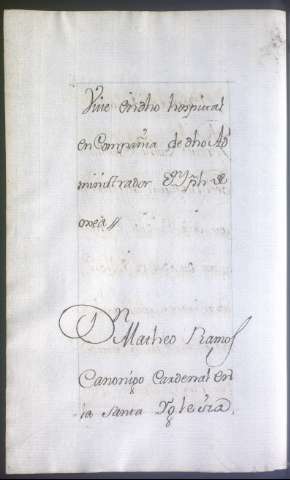 Viue en dho hospital
en Compañia de dho Ad
ministrador Dn Jph de
orea//
Dn Matheo Ramos
Canonigo Cardenal en
la Santa Yglesia,